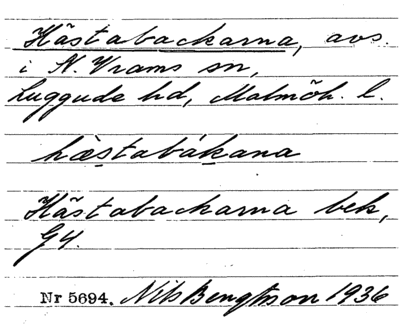 Hästabackarna, avs.
i N. Vrams sn,
Luggude hd, Malmöh. l.
hæstabákana
Hästabackarna bek,
G4.
Nr 5694. Nils Bengtsson 1936